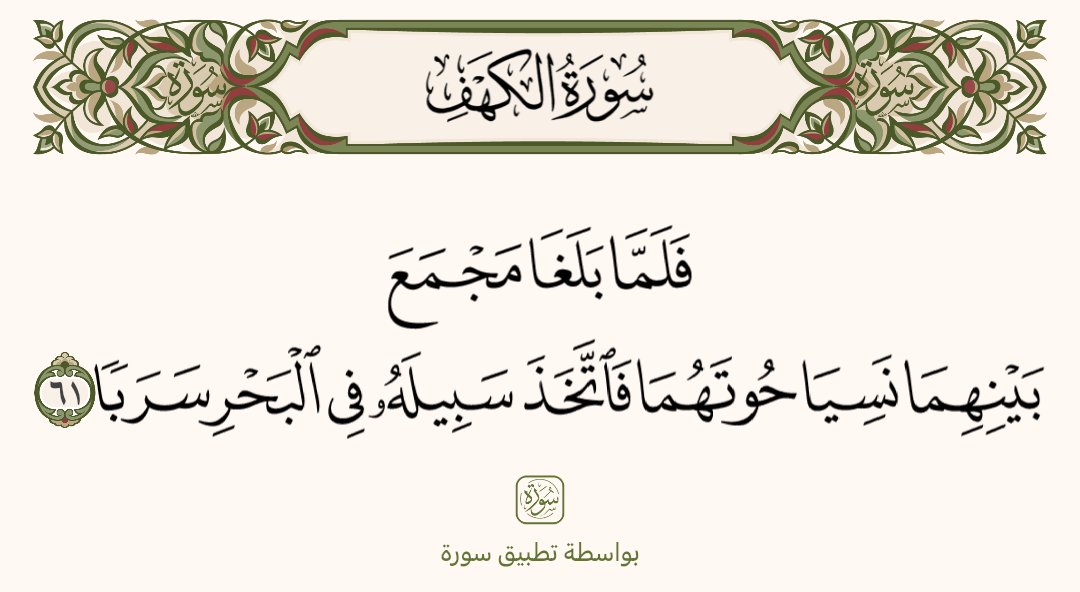 سُورَةُ الكَهْفِ
فَلَمَّا بَلَغَا مَجْمَعَ
بَيْنِهِمَا نَسِيَا حُوتَهُمَا فَٱتَّخَذَ سَبِيلَهُۥ فِى ٱلْبَحْرِ سَرَبًا ٦١
سُورَة
بواسطة تطبيق سورة